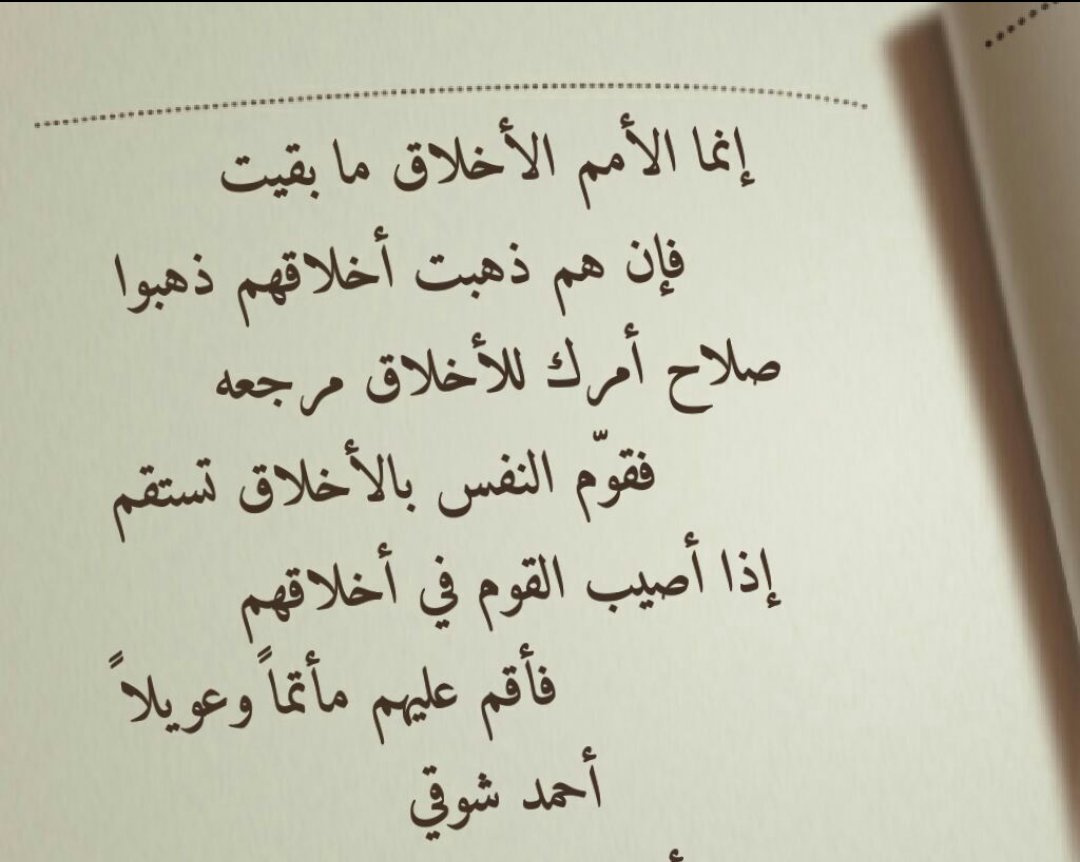 إنما الأمم الأخلاق ما بقيت
فإن هم ذهبت أخلاقهم ذهبوا
صلاح أمرك للأخلاق مرجعه
فقوّم النفس بالأخلاق تستقم
إذا أصيب القوم في أخلاقهم
فأقم عليهم مأتماً وعويلاً
أحمد شوقي